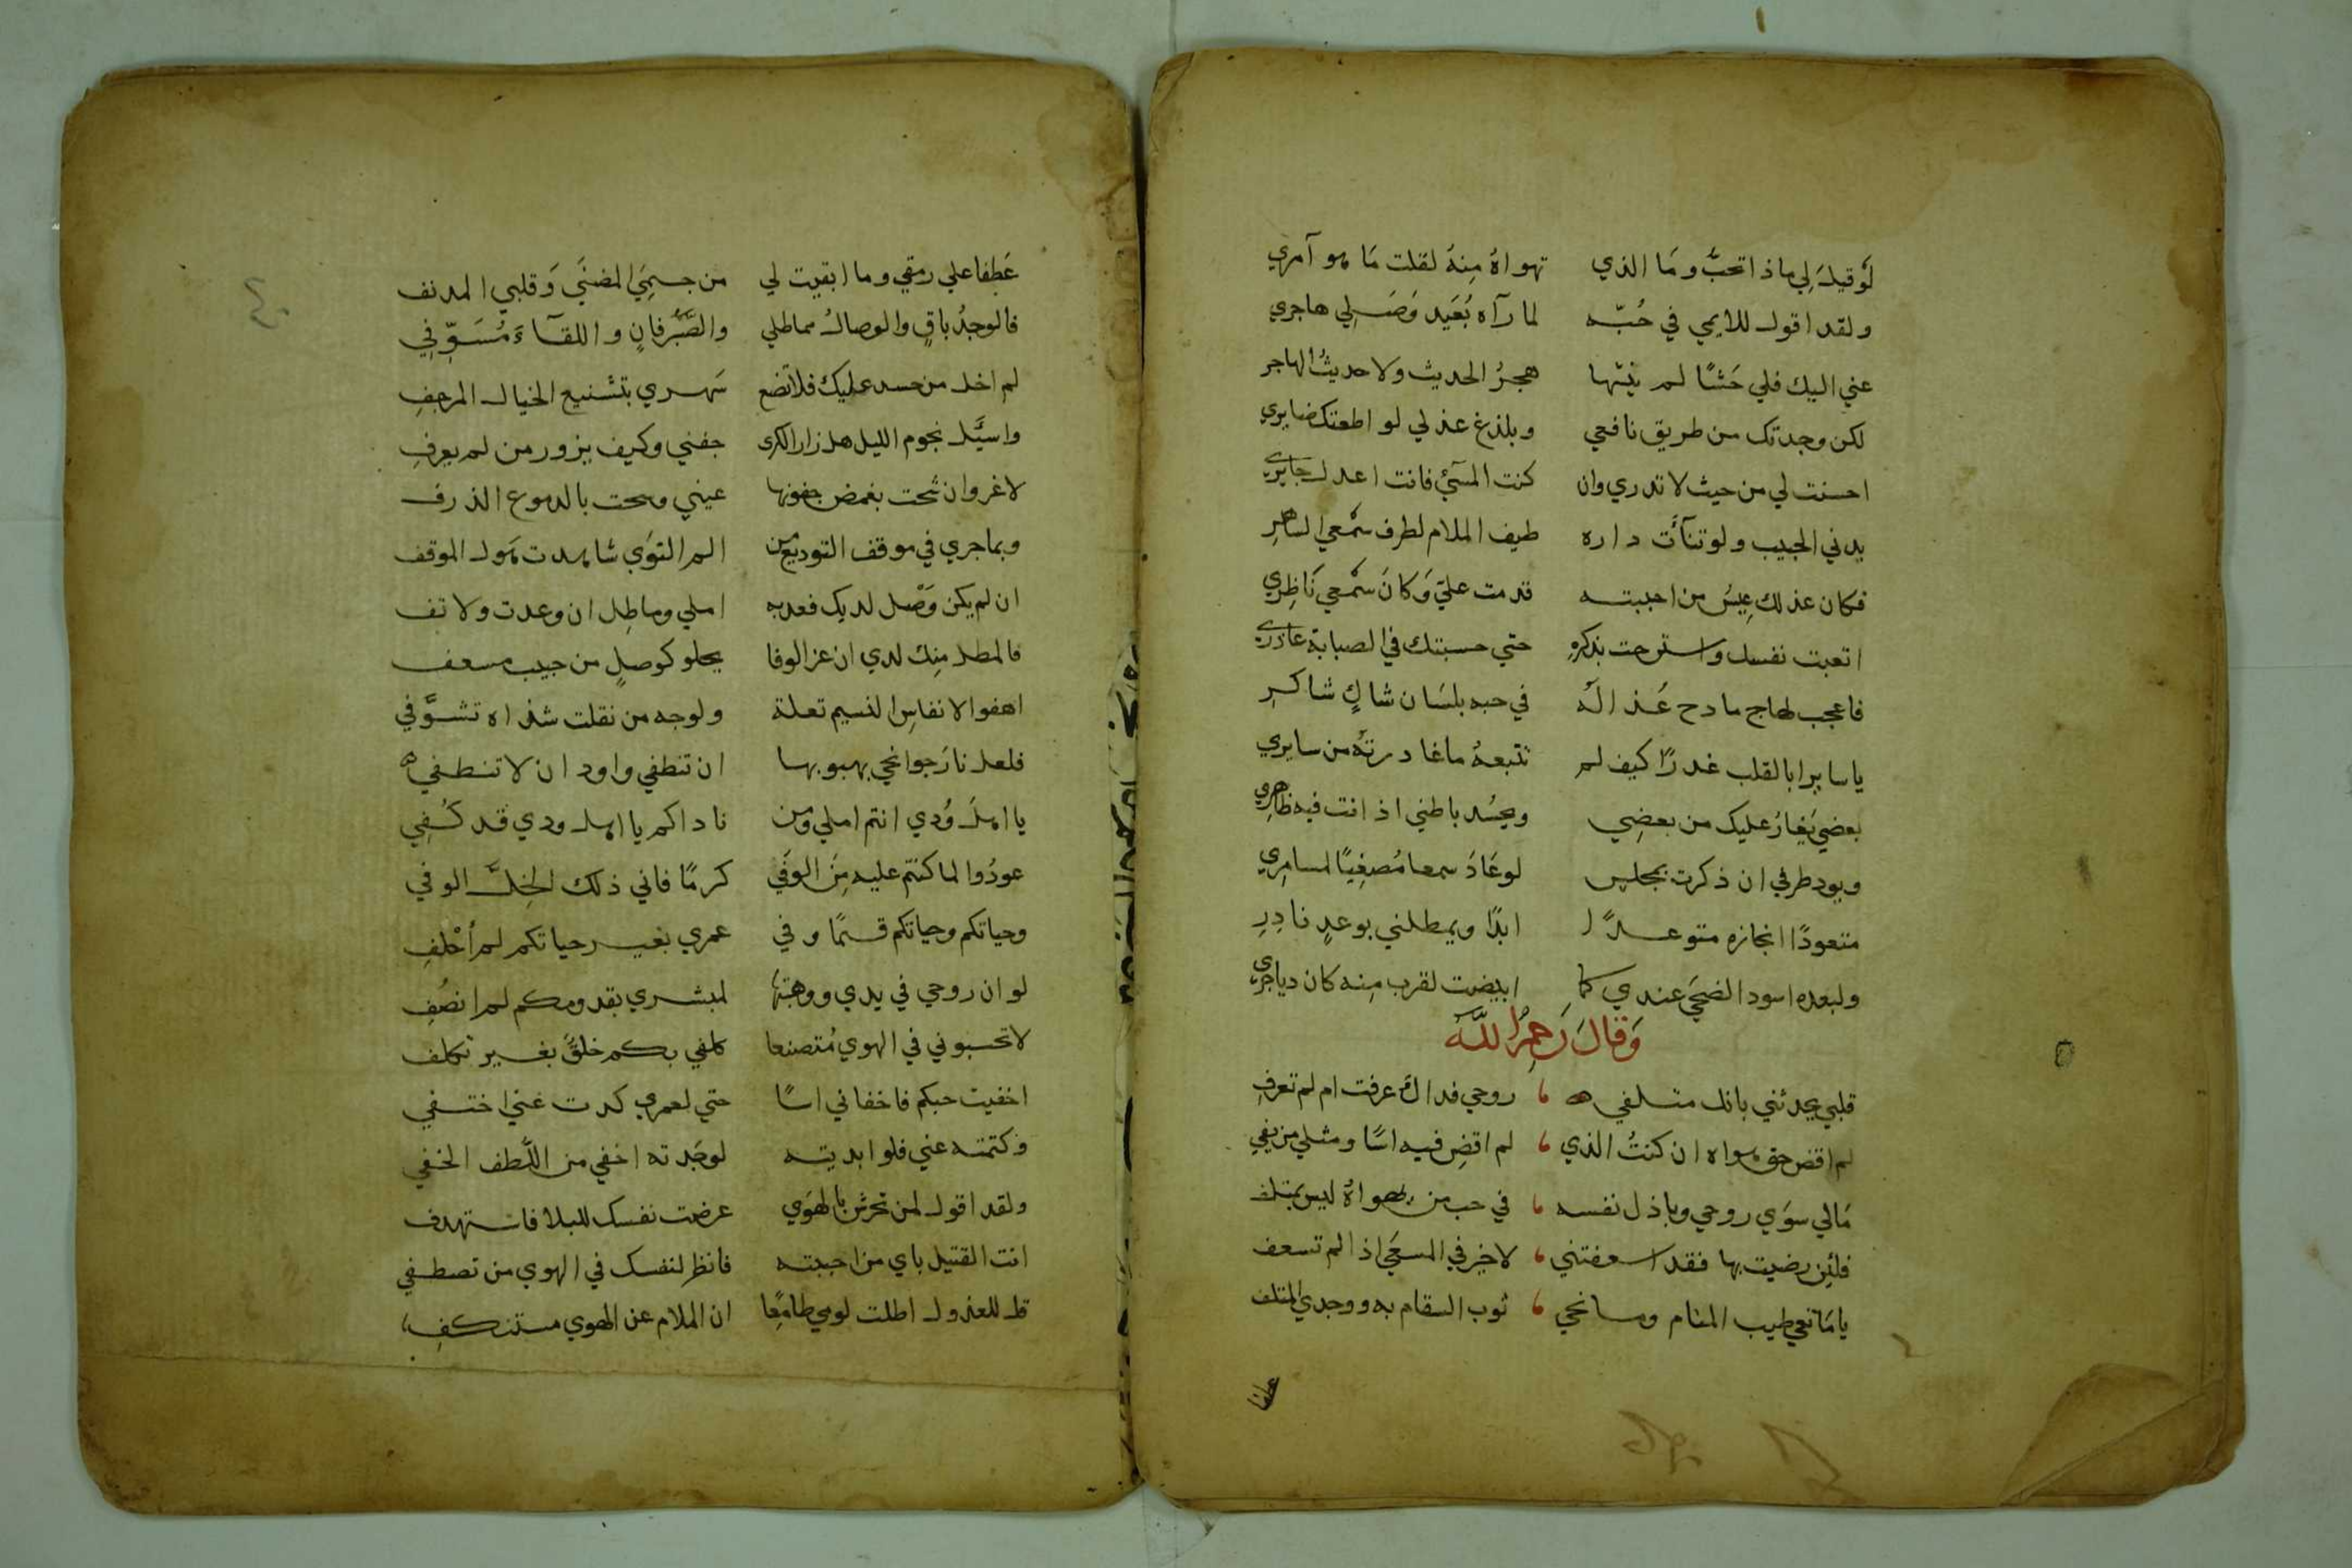 لَوقيلَ لِي ماذا تحبُّ ومَا الذي تهواهُ مِنهُ لقلت مَا هو آمري
ولقد اقول للايمي في حُبّه لما رآه بُعَيد وَصَـلِي هاجري
عني اليك فلي حَشًا لم يثنها هجرُ الحديث ولا حديثُ الهاجر
لكن وجدتك من طريق نافعي وبلذغ عذلي لو اطعتك ضايري
احسنت لي من حيث لا تدري وان كنت المسَيْ فانت اعدل جايري
يدني الحبيب ولو تنآءَت داره طيف الملام لطرف سمْعي الساهرِ
فكان عذلك عِيسُ من احببته قدمت عليّ وَكانَ سمْعي نَاظِري
اتعبت نفسك واسترحت بذكرهِ حتي حسبتك في الصبابة عاذري
فاعجب لهاج مادح عُذالَه في حبه بلسَان شاكٍ شاكرِ
ياسايرا بالقلب غدرًا كيف لم تتبعهُ ماغادرتهُ من سايري
بعضي يَغارُ عليك من بعضِي ويحسُد باطني اذ انت فيه ظاهري
ويود طرفي ان ذكرت بمجلس لوعَادَ سمعا مُصغِيًا لمسامِري
متعودًا انجازه متوعـدًا ابدًا ويمطلني بوعدٍ نادِرِ
ولبعده اسود الضحَي عندي كما ابيضت لقرب مِنه كان دياجري
وَقالَ رَحِمَهُ اللَّه
قلبي يحدثني بانك متـلفي روحي فداك عرفت ام لم تعرفِ
لم اقض حق هواه ان كنتُ الذي لم اقضِ فيه اسًا ومثلي من يفي
مَالي سوَي روحي وباذل نفسه في حب من يهواهُ ليس بمتلف
فلئِن رضيت بها فقد اسعفتني لاخير في المسعَي اذا لم تسعف
يا مَانعي طيب المنام ومـانحي ثوب السقام به ووجدي المتلف
عطفا
عَطِفا علي رمقي وما ابقيت لي من جسمِيَ المضنَي وَقلبي المدنف
فالوجدُ باقٍ والوصالُ مماطلي والصَّبْرُ فانٍ واللقآءَ مُسَوِّفِي
لم اخل من حسد عليك فلا تضع سَهري بتشنيع الخيال المرجفِ
واسيَّل نجوم الليل هل زار الكرى جفني وكيف يزور من لم يعرفِ
لاغروان شحت بغمض جفونها عيني وسحت بالدموع الذرف
وبماجري في موقف التوديع من الم النوَي شاهدت هَول الموقف
ان لم يكن وَصْل لديك فعد به املي وماطِل ان وعدت ولا تف
فالمطل مِنك لدي ان عز الوفا يحلو كوصلٍ من حبيب مسعف
اهفوا لانفاسِ النسيم تعلة ولوجه من نقلت شذاه تشوَّفي
فلعل نارَجوانحي بهبوبها ان تنطفي واود ان لا تنطفي
يا اهلَ وُدي انتم املي ومن ناداكم يا اهل ودي قد كُفِي
عودُوا لما كنتم عليه مِنَ الوَفَي كرمًا فاني ذلك الخِلَّ الوفي
وحياتكم وحياتكم قسمًا وفي عمري بغير حياتكم لم اُحْلفِ
لوان روحي في يدي ووهبتها لمبشري بقدومكم لم انصُفِ
لا تحسبوني في الهوي مُتصنعا كلفي بكم خلقٌ بغير تكلف
اخفيت حبكم فاخفاني اسًا حتي لعمري كدت عني اختفي
وكتمته عني فلو ابديته لوجَدته اخفي من اللُّطف الخفي
ولقد اقول لمن تحرش بالهوَي عرضت نفسك للبلا فاستهدف
انت القتيل باي من احببته فانظر لنفسك في الهوي من تصطفي
قل للعذول اطلت لومي طامِعًا ان الملام عن الهوي مستنكفِ